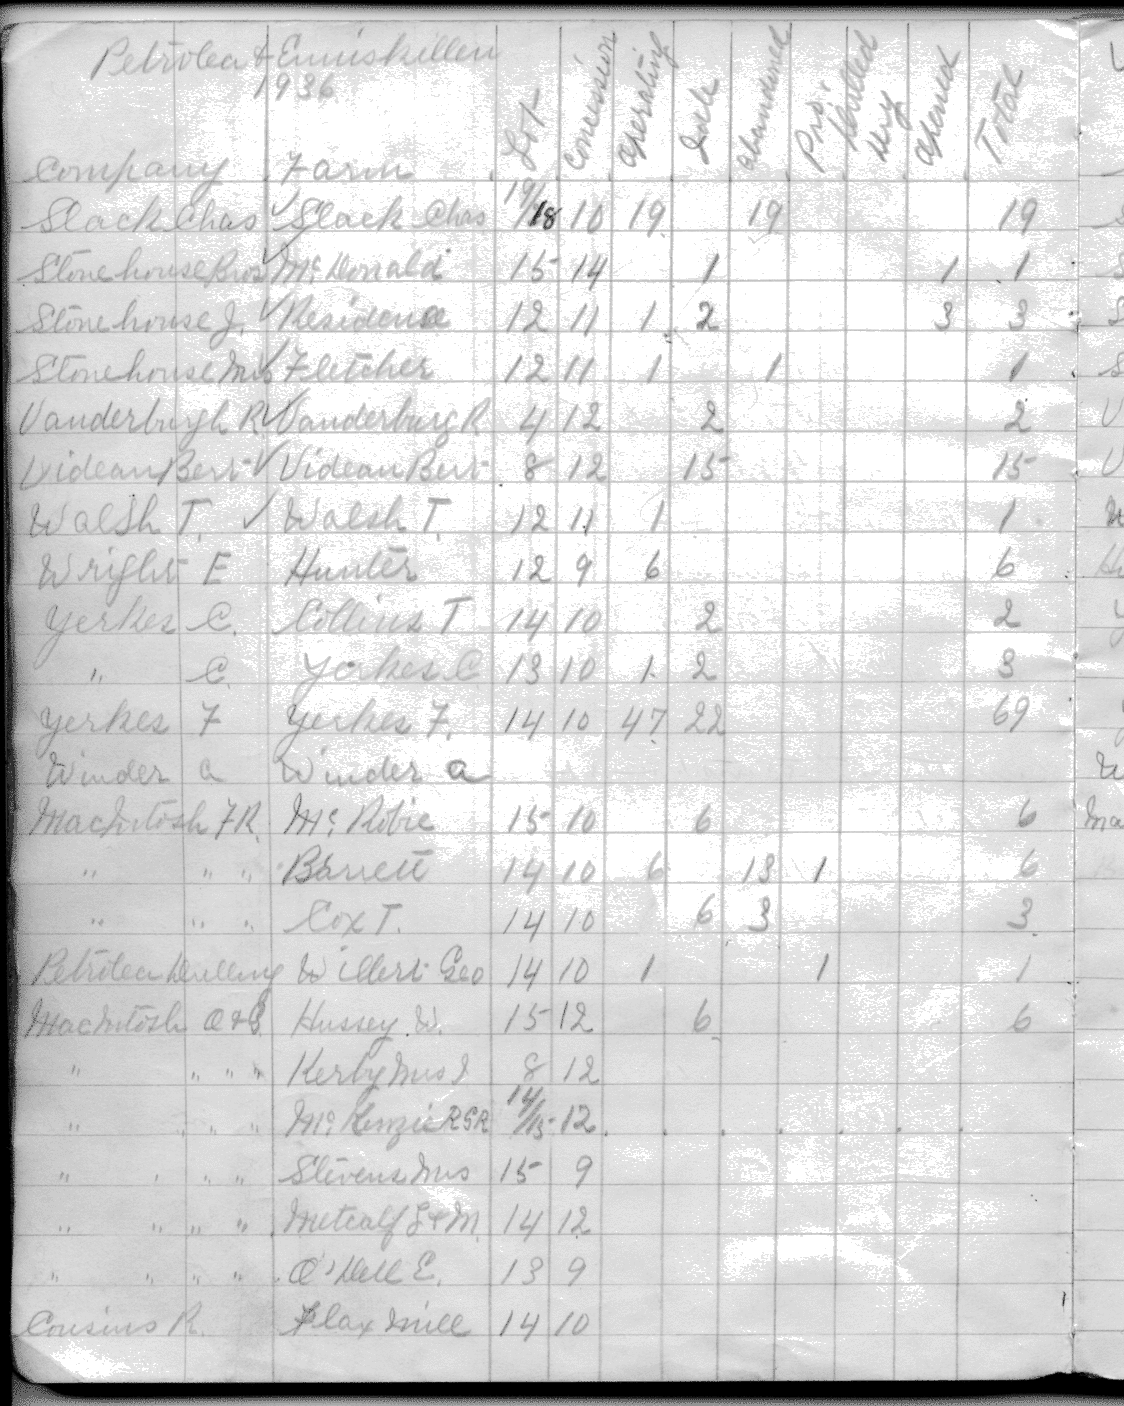 Petrolea & Enniskillen
1936
Company Farm Lot Concession operating Idle abandoned Pro. drilled dry opened Total
Slack Chas ✓ Slack Chas 19/18 10 19 19 19
Stonehouse Bros ✓ Mc Donald 15 14 1 1 1
Stonehouse J. ✓ Residence 12 11 1 2 3 3
Stonehouse Mrs ✓ Fletcher 12 11 1 1 1
Vanderburgh R ✓ Vanderburg R 4 12 2 2
Videan Bert ✓ Videan Bert 8 12 15 15
Walsh T. ✓ Walsh T. 12 11 1 1
Wright E Hunter 12 9 6 6
Yerkes C. Collins T 14 10 2 2
" C. Yerkes C 13 10 1 2 3
Yerkes F Yerkes F. 14 10 47 22 69
Winder a Winder a
MacIntosh F.R. Mc Robie 15 10 6 6
" " " Barrett 14 10 6 13 1 6
" " " Cox T. 14 10 6 3 3
Petrolea Drilling Willert Geo 14 10 1 1 1
MacIntosh Hussey W. 15 12 6 6
" " " " Kerby Mrs J 8 12
" " " " Mc Kenzie R G R 14/15 12
" " " " Stevens Mrs 15 9
" " " " Metcalf L & M. 14 12
" " " " O'Dell E. 13 9
Cousins R. Flax Mill 14 10